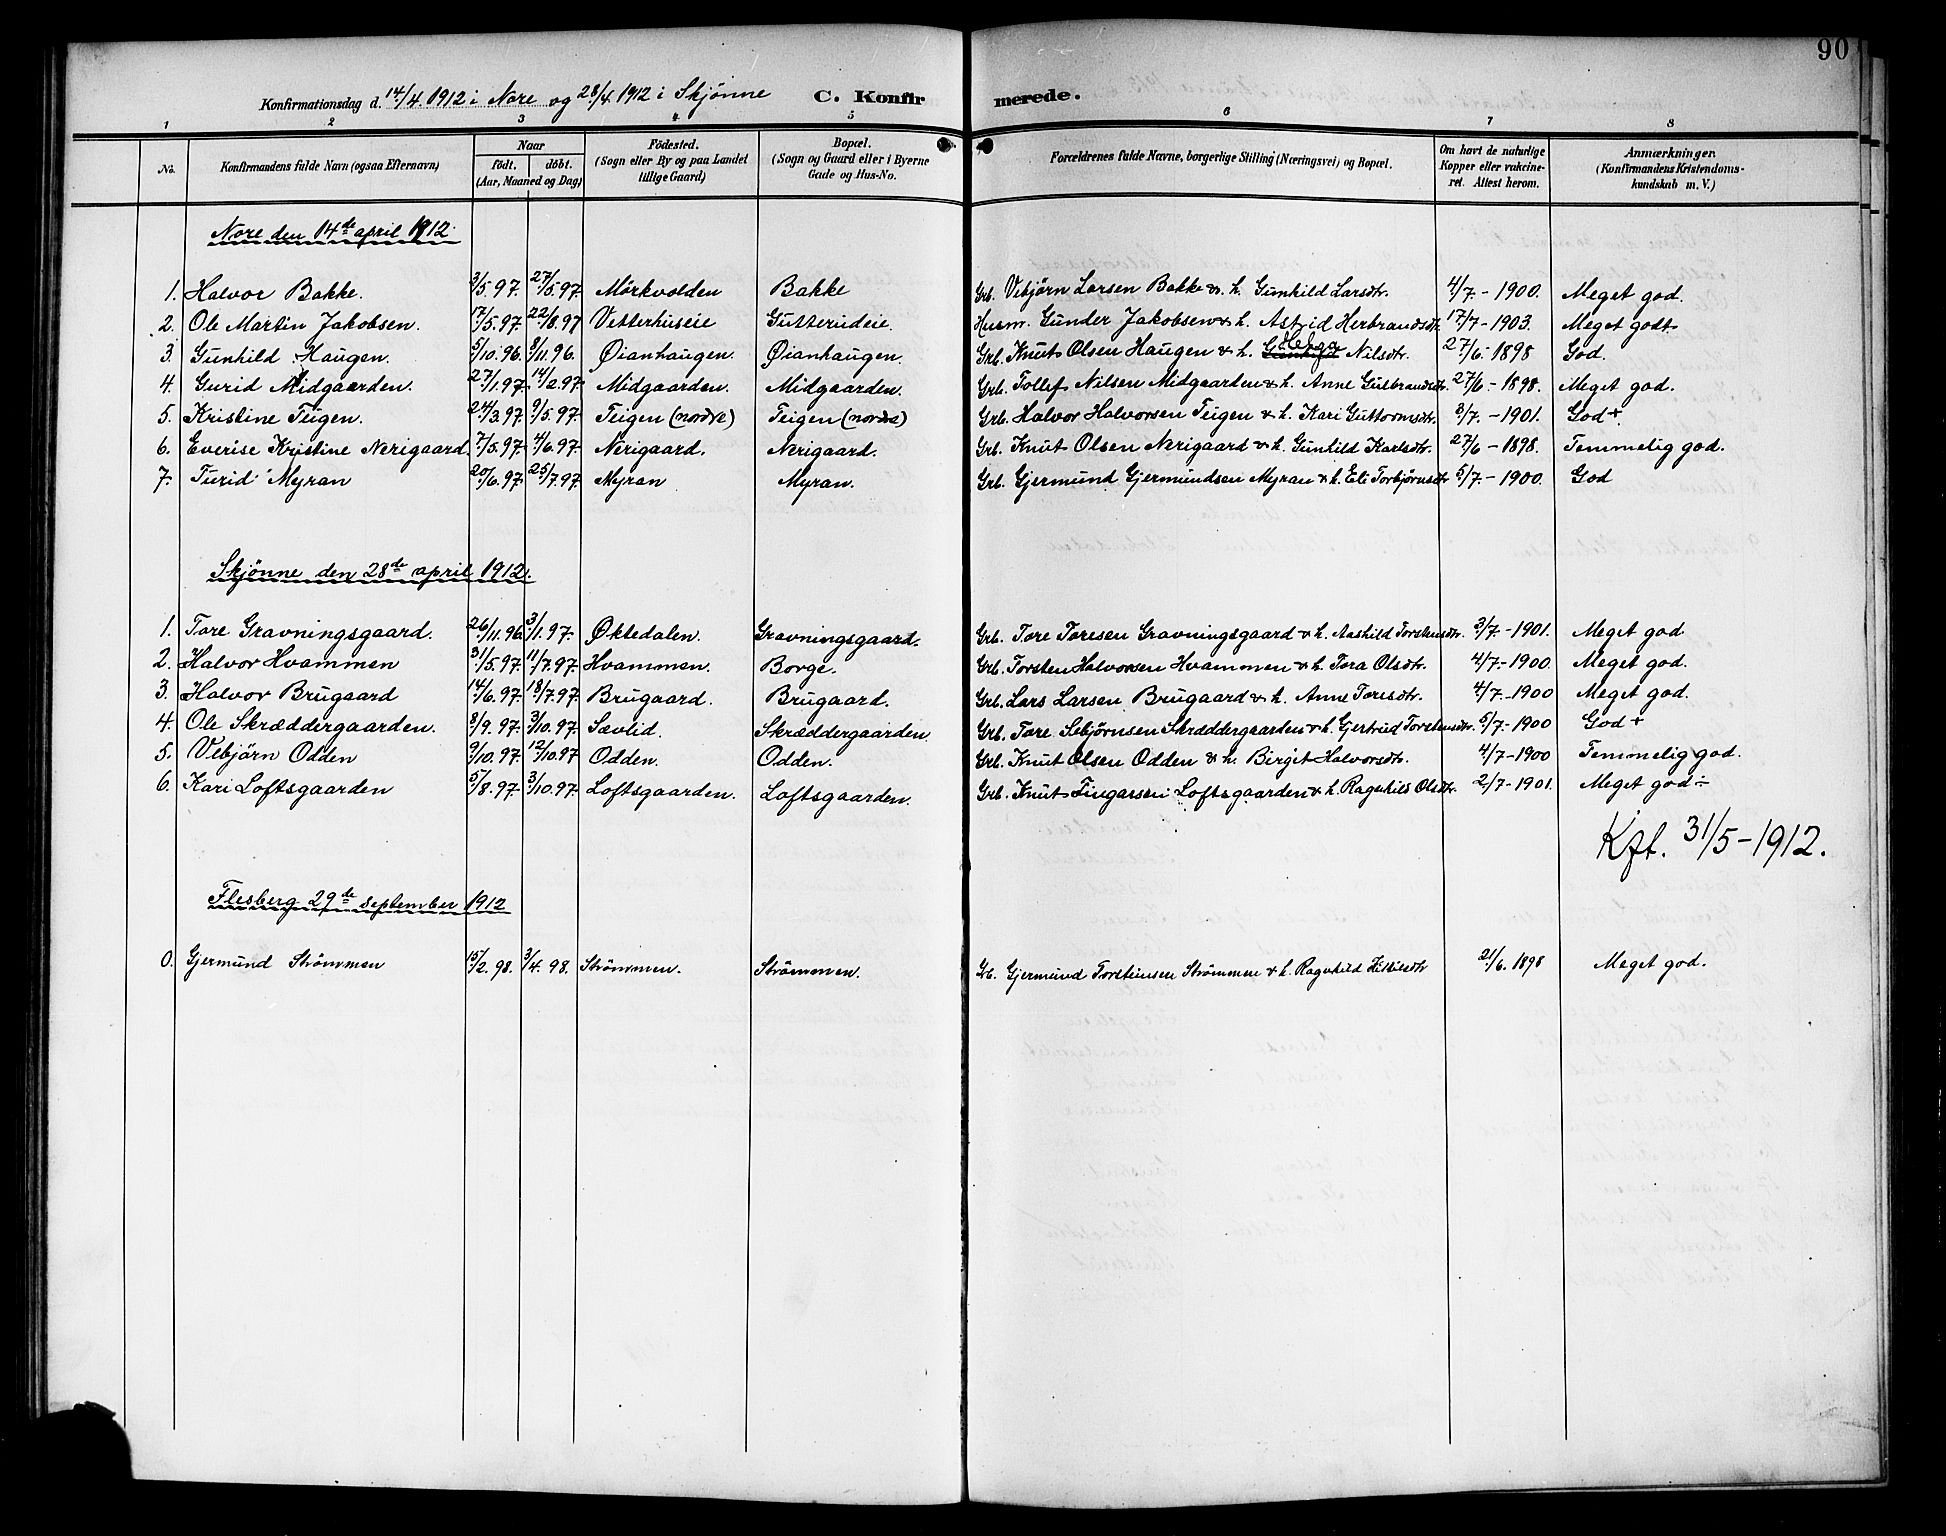 90
Konfirmationsdag d. 14/4. 1912 i Nore og 28/4 1912 i Skjønne C. Konfirmerede.
1 2 3 4 5 6 7 8
No. Konfirmandens fulde Navn (ogsaa Efternavn) Naar født. døbt. (Aar, Maaned og Dag) Fødested. (Sogn eller By og paa Landet tillige Gaard) Bopæl. (Sogn og Gaard eller i Byerne Gade og Hus-No. Forældrenes fulde Navne, borgerlige Stilling (Næringsvei) og Bopæl. Om havt de naturlige Kopper eller vakcineret. Attest herom. Anmærkninger. (Konfirmandens Kristendomskundskab m. V.)
Nore den 14de april 1912.
1. Halvor Bakke. 3/5.97. 27/5.97. Mörkvolden Bakke Grb. Vebjörn Larsen Bakke & h. Gunhild Larsdtr. 4/7.-1900. Meget god.
2. Ole Martin Jakobsen. 17/5.97. 22/8.97 Vetterhuseie Gutterudeie. Husm. Gunder Jakobsen & h. Astrid Herbrandsdtr. 17/7-1903. Meget godt
3. Gunhild Haugen. 5/10.96. 8/11.96. Øianhaugen. Øianhaugen. Grb. Knut Olsen Haugen & h. Helga Nilsdtr. 27/6-1898 God.
4. Gurid Midgaarden. 27/1.97. 14/2.97. Midgaarden. Midgaarden. Grb. Tollef Nilsen Midgaarden & h. Anne Gulbrandsdtr. 27/6-1898. Meget god.
5. Kristine Teigen. 24/3.97. 9/5.97. Teigen (nordre) Teigen (nordre) Grb. Halvor Halvorsen Teigen & h. Kari Guttormsdtr. 3/7.-1901. God +
6. Everise Kristine Nerigaard. 7/5.97. 4/6.97. Nerigaard. Nerigaard. Grb. Knut Olsen Nerigaard & h. Gunhild Karlsdtr. 27/6-1898. Temmelig god.
7. Turid Myran 20/6.97. 25/7.97. Myran Myran. Grb. Gjermund Gjermundsen Myran & h. Eli Torbjørnsdtr 5/7.-1900. God
Skjönne den 28de april 1912.
1. Tore Gravningsgaard. 26/11.96. 3/1.97. Øktedalen. Gravningsgaard. Grb. Tore Toresen Gravningsgaard & h. Aashild Torstensdtr. 3/7.-1901. Meget god
2. Halvor Hvammen 31/5.97. 11/7.97. Hvammen. Borge. Grb. Torsten Halvorsen Hvammen & h. Tora Olsdtr. 4/7.-1900. Meget god.
3. Halvor Brugaard 14/6.97. 18/7.97. Brugaard. Brugaard. Grb. Lars Larsen Brugaard & h. Anne Toresdtr. 4/7.-1900 Meget god.
4. Ole Skræddergaarden. 8/9.97. 3/10.97. Sævlid. Skræddergaarden Grb. Tore Sebjörnsen Skræddergaarden & h. Gjertrud Torstensdtr. 5/7.-1900 God +
5. Vebjörn Odden 9/10.97. 12/10.97 Odden. Odden. Grb. Knut Olsen Odden & h. Birgit Halvorsdtr. 4/7-1900 Temmelig god.
6. Kari Loftsgaarden 5/8.97. 3/10.97. Loftsgaarden. Loftsgaarden. Grb. Knut Fingarsen Loftsgaarden & h. Ragnhild Olsdtr. 2/7-1901. Meget god ÷
Kft. 31/5-1912.
Flesberg 29de september 1912
0. Gjermund Strömmen 15/2.98. 3/4.98. Strömmen. Strömmen. Gb. Gjermund Torsteinsen Strömmen & h. Ragnhild Kittilsdtr 21/6. 1898 Meget god.